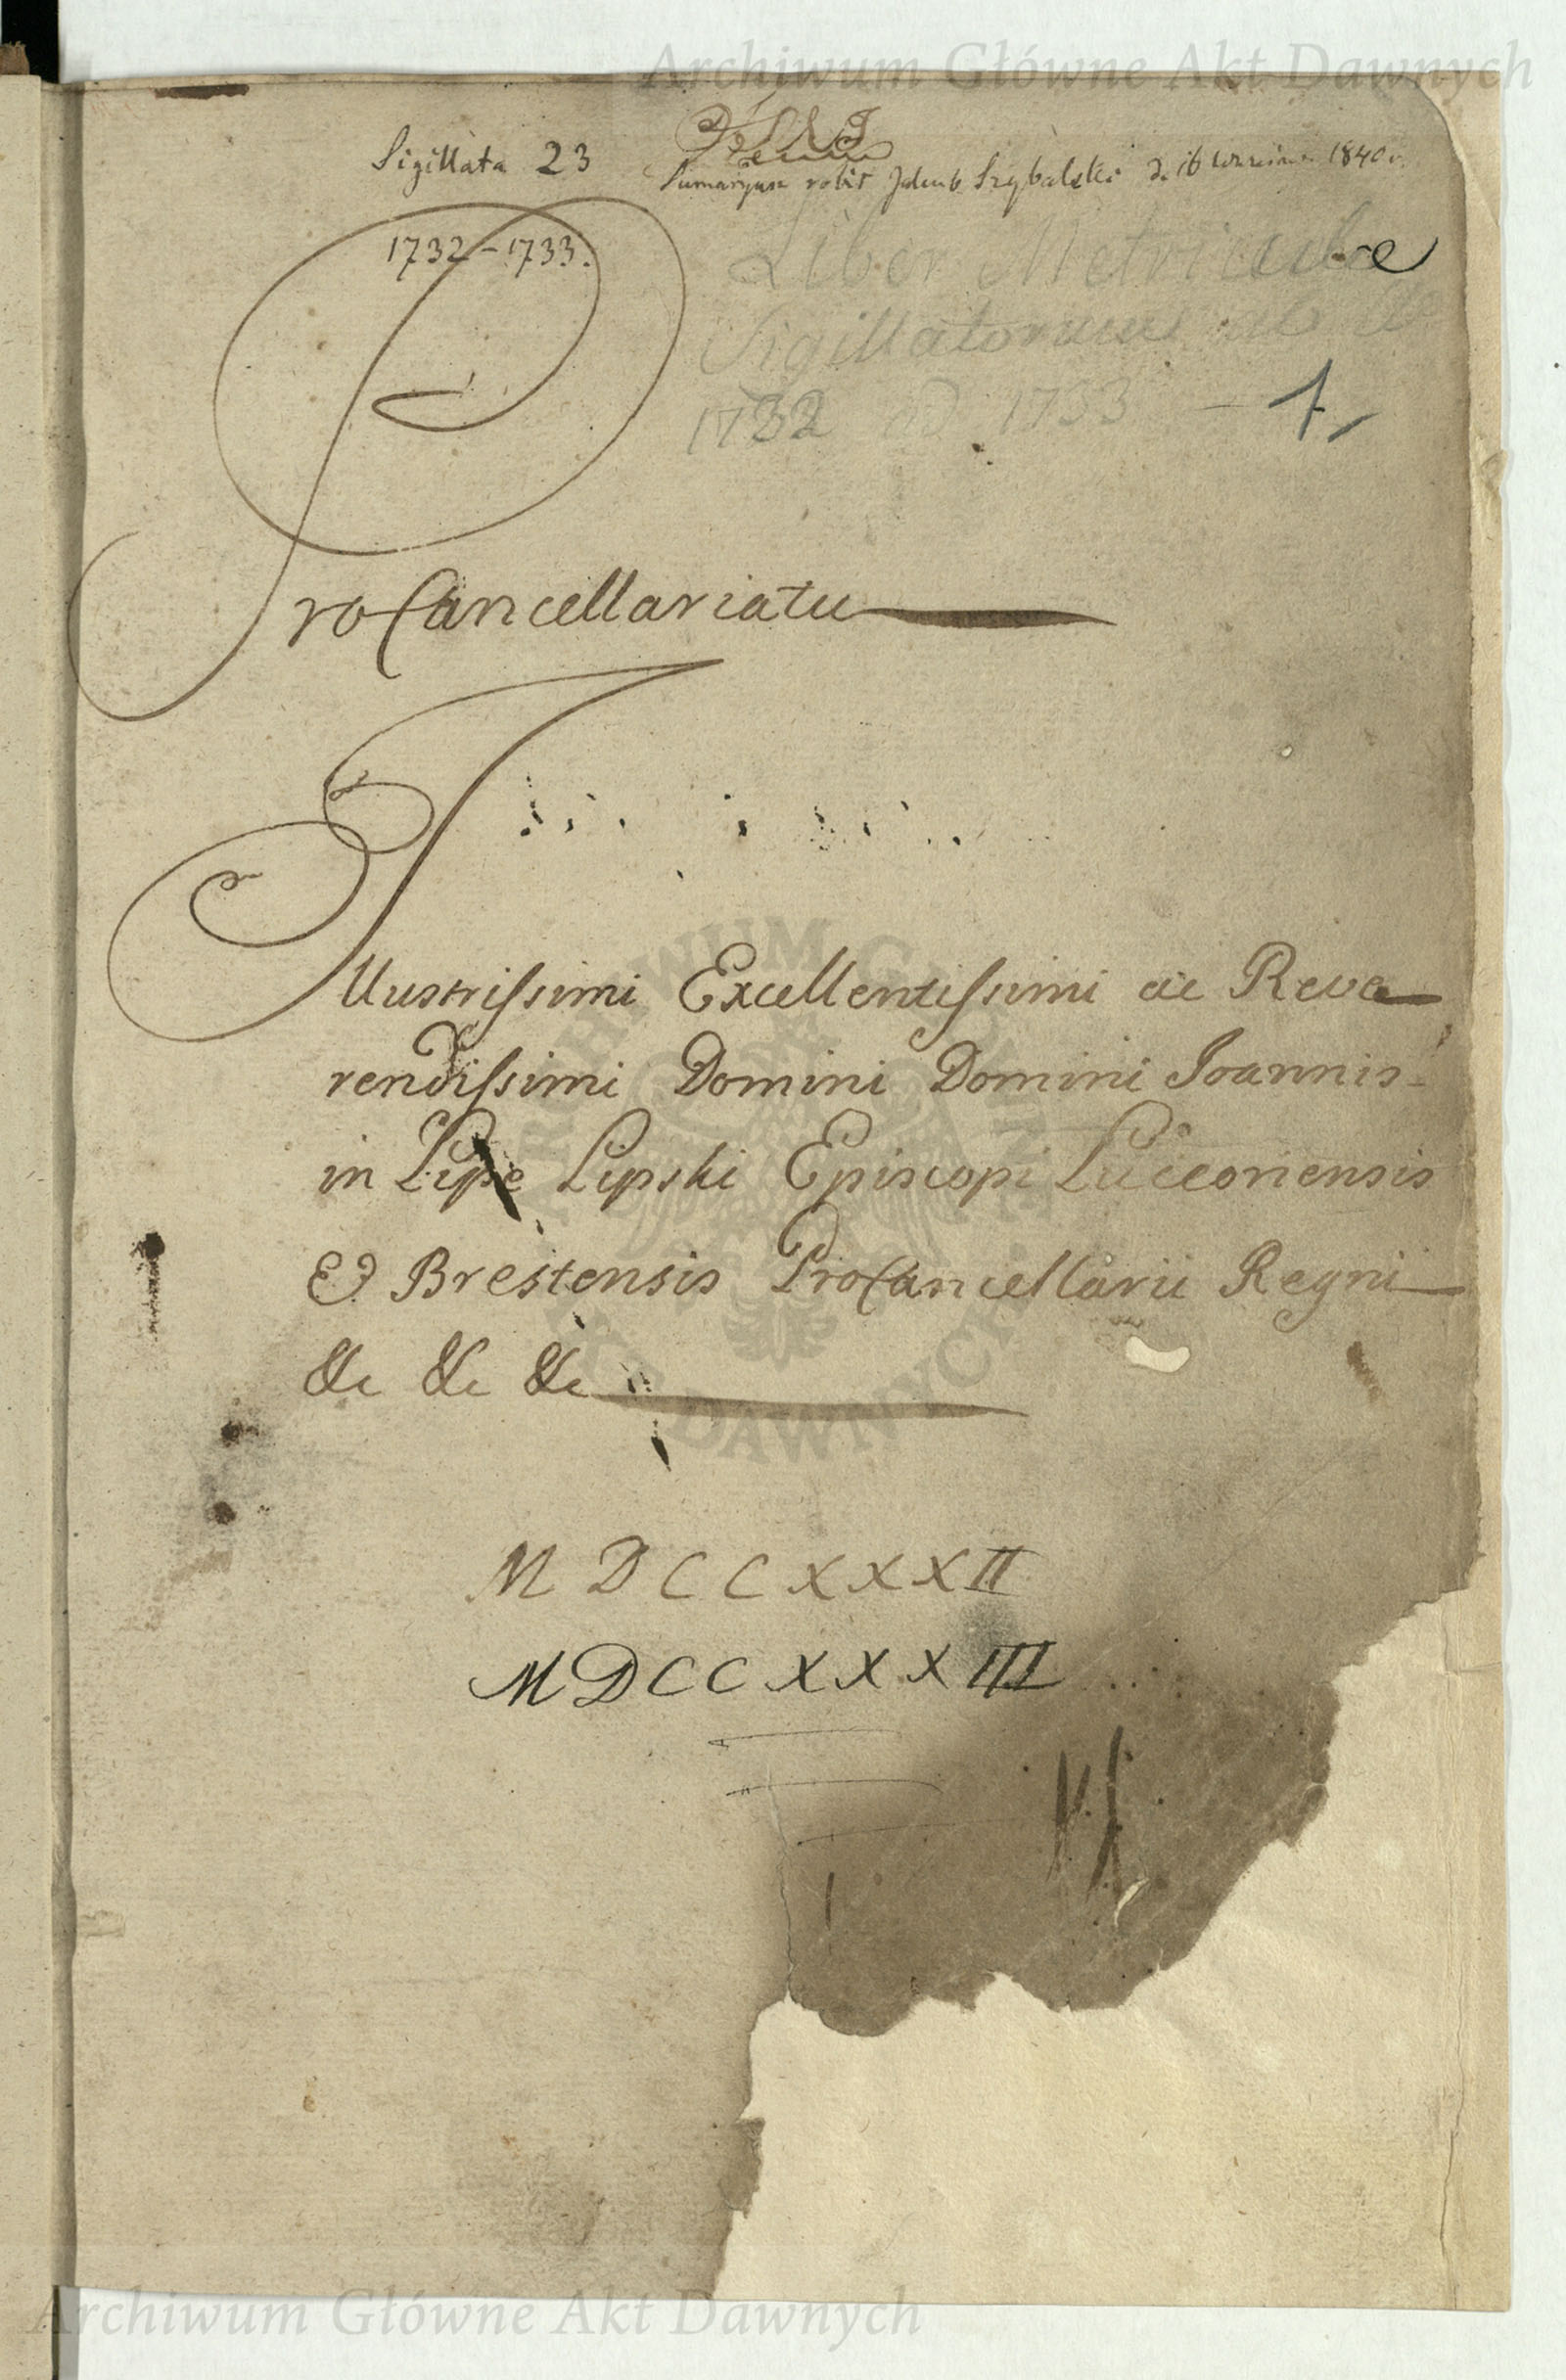 Archiwum Główne Akt Dawnych
Sigillata 23
Sumaryusz robił Jakub Szybalski d. 16 1840 r.
1732-1733.
Liber Metriculae
Sigillatorum ab
1732 ad 1733
1
ProCancellariatu
Illustrissimi Excellentissimi ac Reve
rendissimi Domini Domini Joannis
in Lipe Lipski Episcopi Luceoriensis
Et Brestensis ProCancellarii Regni
&c &c &c
MDCCXXXII
MDCCXXXIII
ARCHIWUM GŁÓWNE AKT DAWNYCH
Archiwum Główne Akt Dawnych